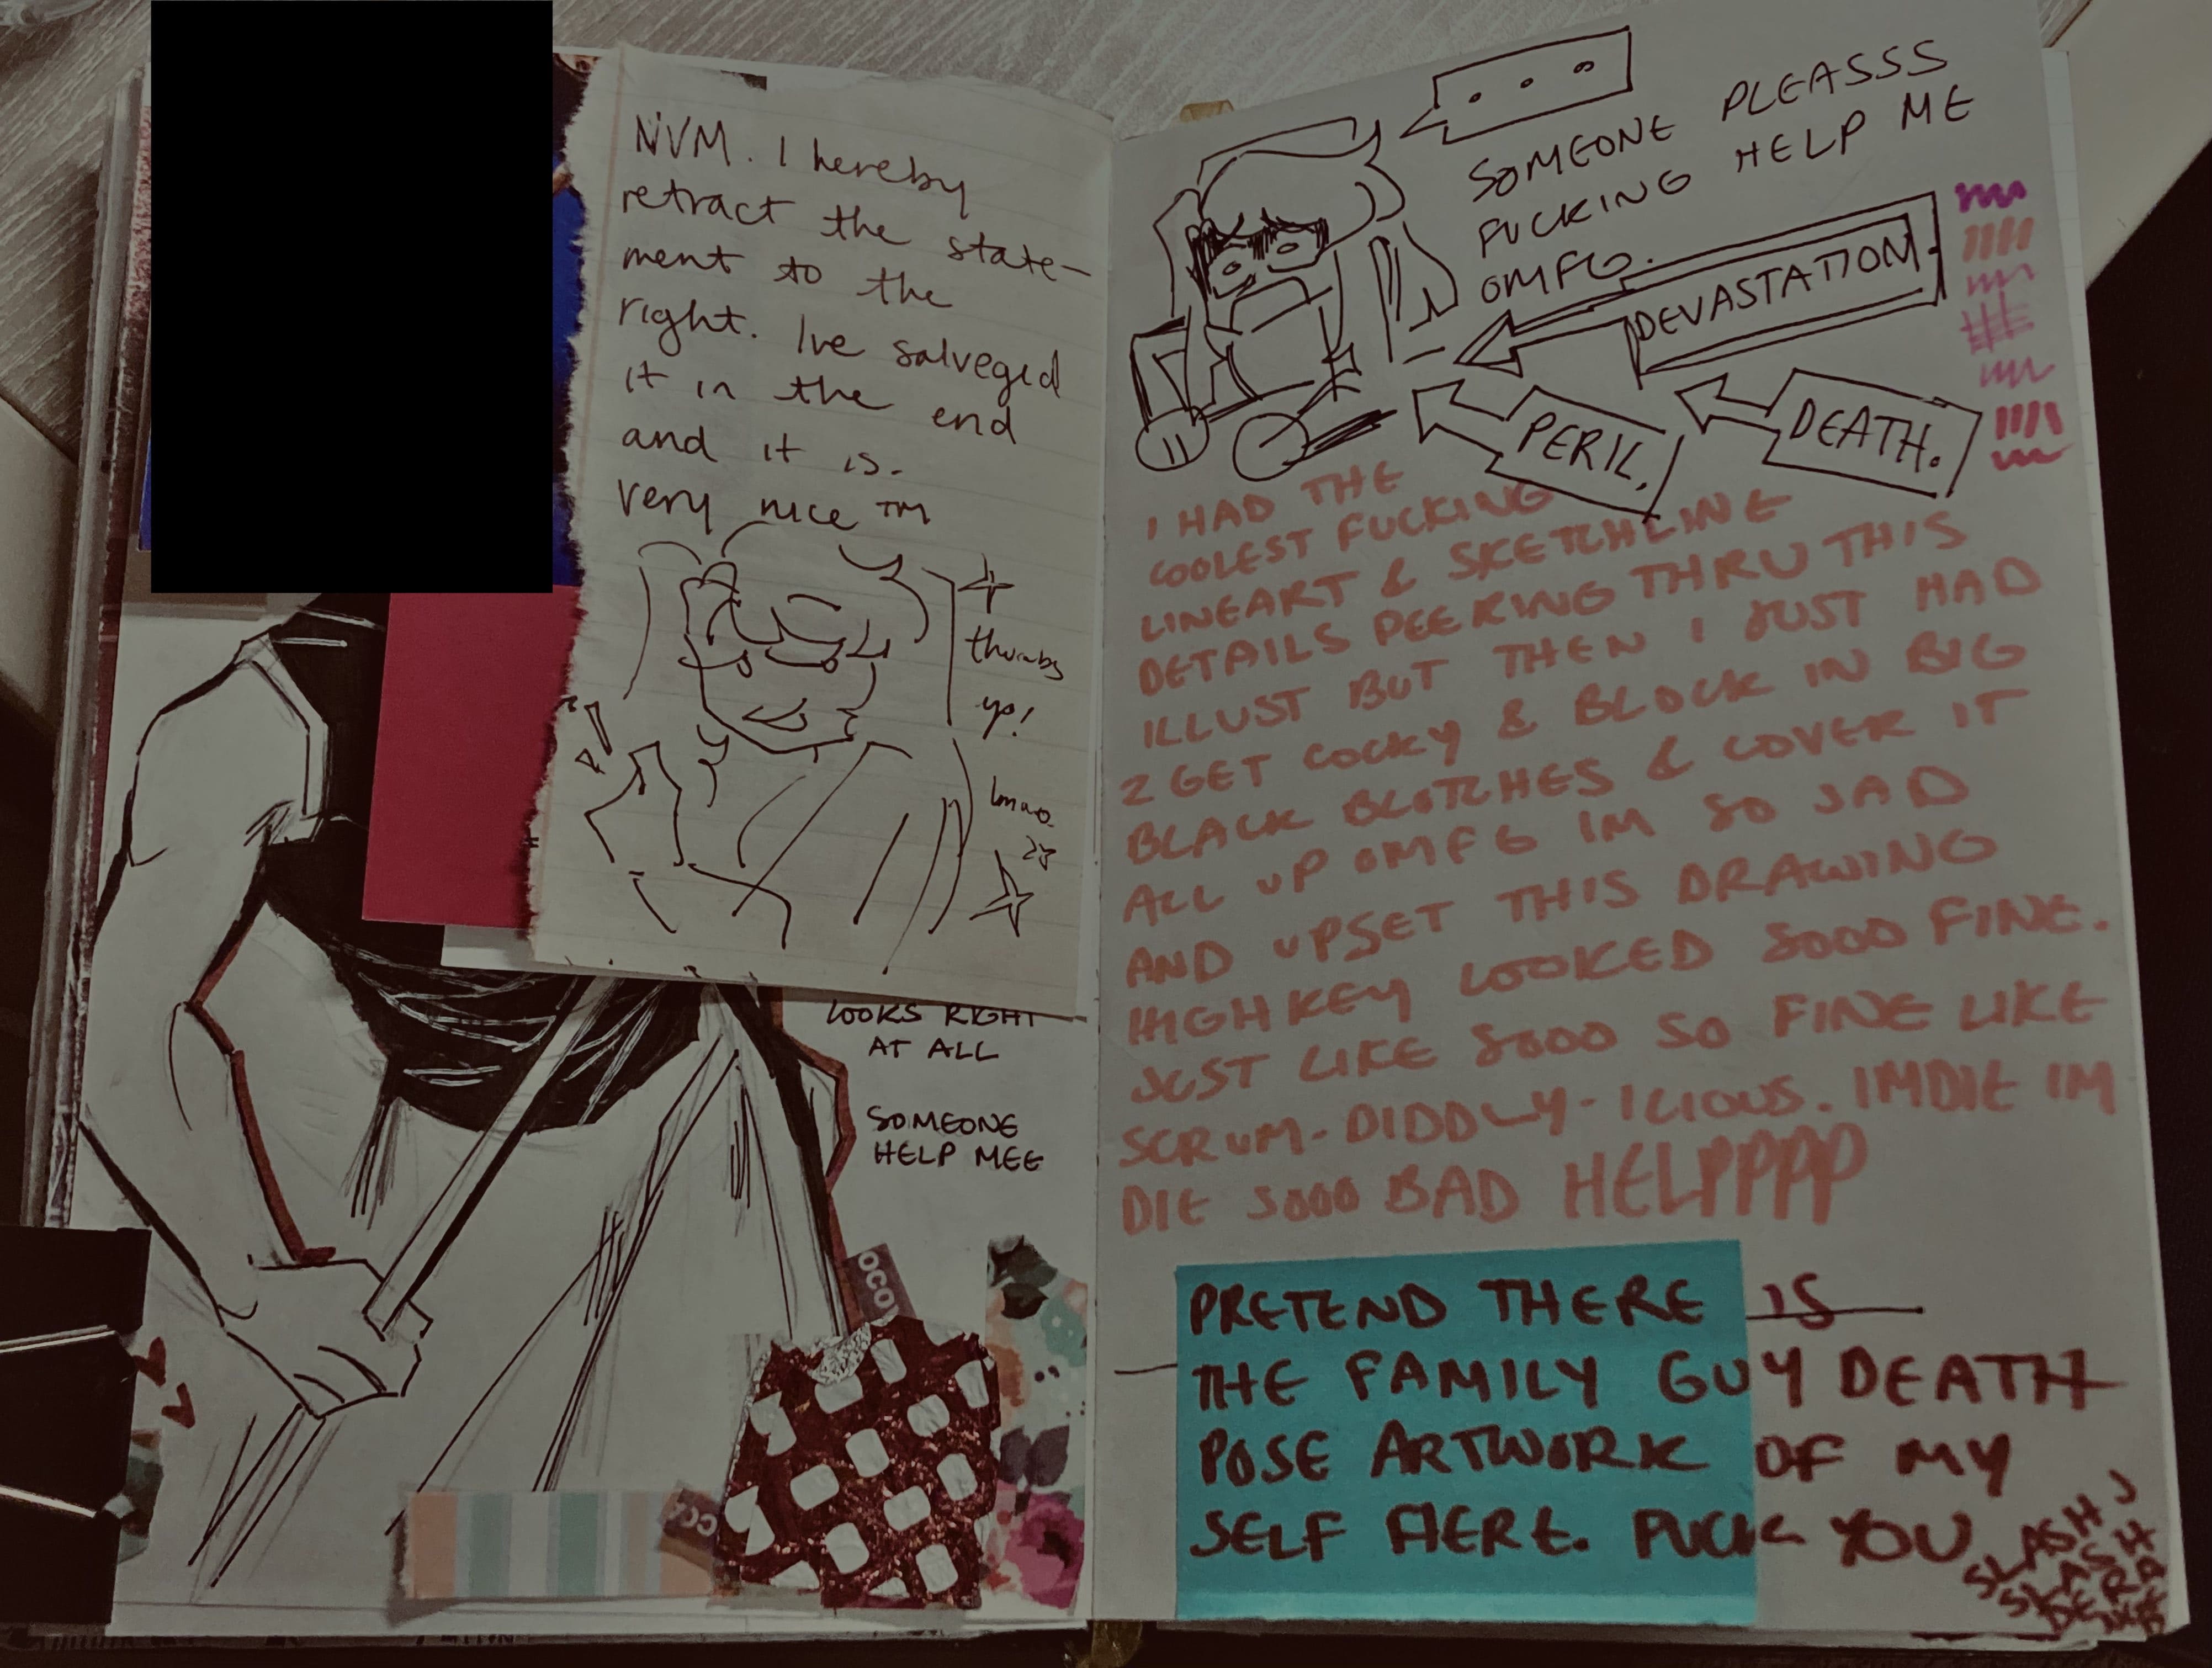 NVM. I hereby
retract the state-
ment to the
right. Ive salveged
it in the end
and it is.
very nice TM
thumbs
yo!
lmao
LOOKS RIGHT
AT ALL
SOMEONE
HELP MEE
OCCO
CCA
. . .
SOMEONE PLEASSS
FUCKING HELP ME
OMFG.
DEVASTATION
PERIL,
DEATH.
I HAD THE
COOLEST FUCKING
LINEART & SKETCHLINE
DETAILS PEERING THRU THIS
ILLUST BUT THEN I JUST HAD
2 GET COCKY & BLOCK IN BIG
BLACK BLOTCHES & COVER IT
ALL UP OMFG IM SO SAD
AND UPSET THIS DRAWING
HIGHKEY LOOKED SOOO FINE.
JUST LIKE SOOO SO FINE LIKE
SCRUM-DIDDLY-ICIOUS. IMDIE IM
DIE SOOO BAD HELPPPP
PRETEND THERE IS
THE FAMILY GUY DEATH
POSE ARTWORK OF MY
SELF HERE. FUCK YOU
SLASH J
SLASH